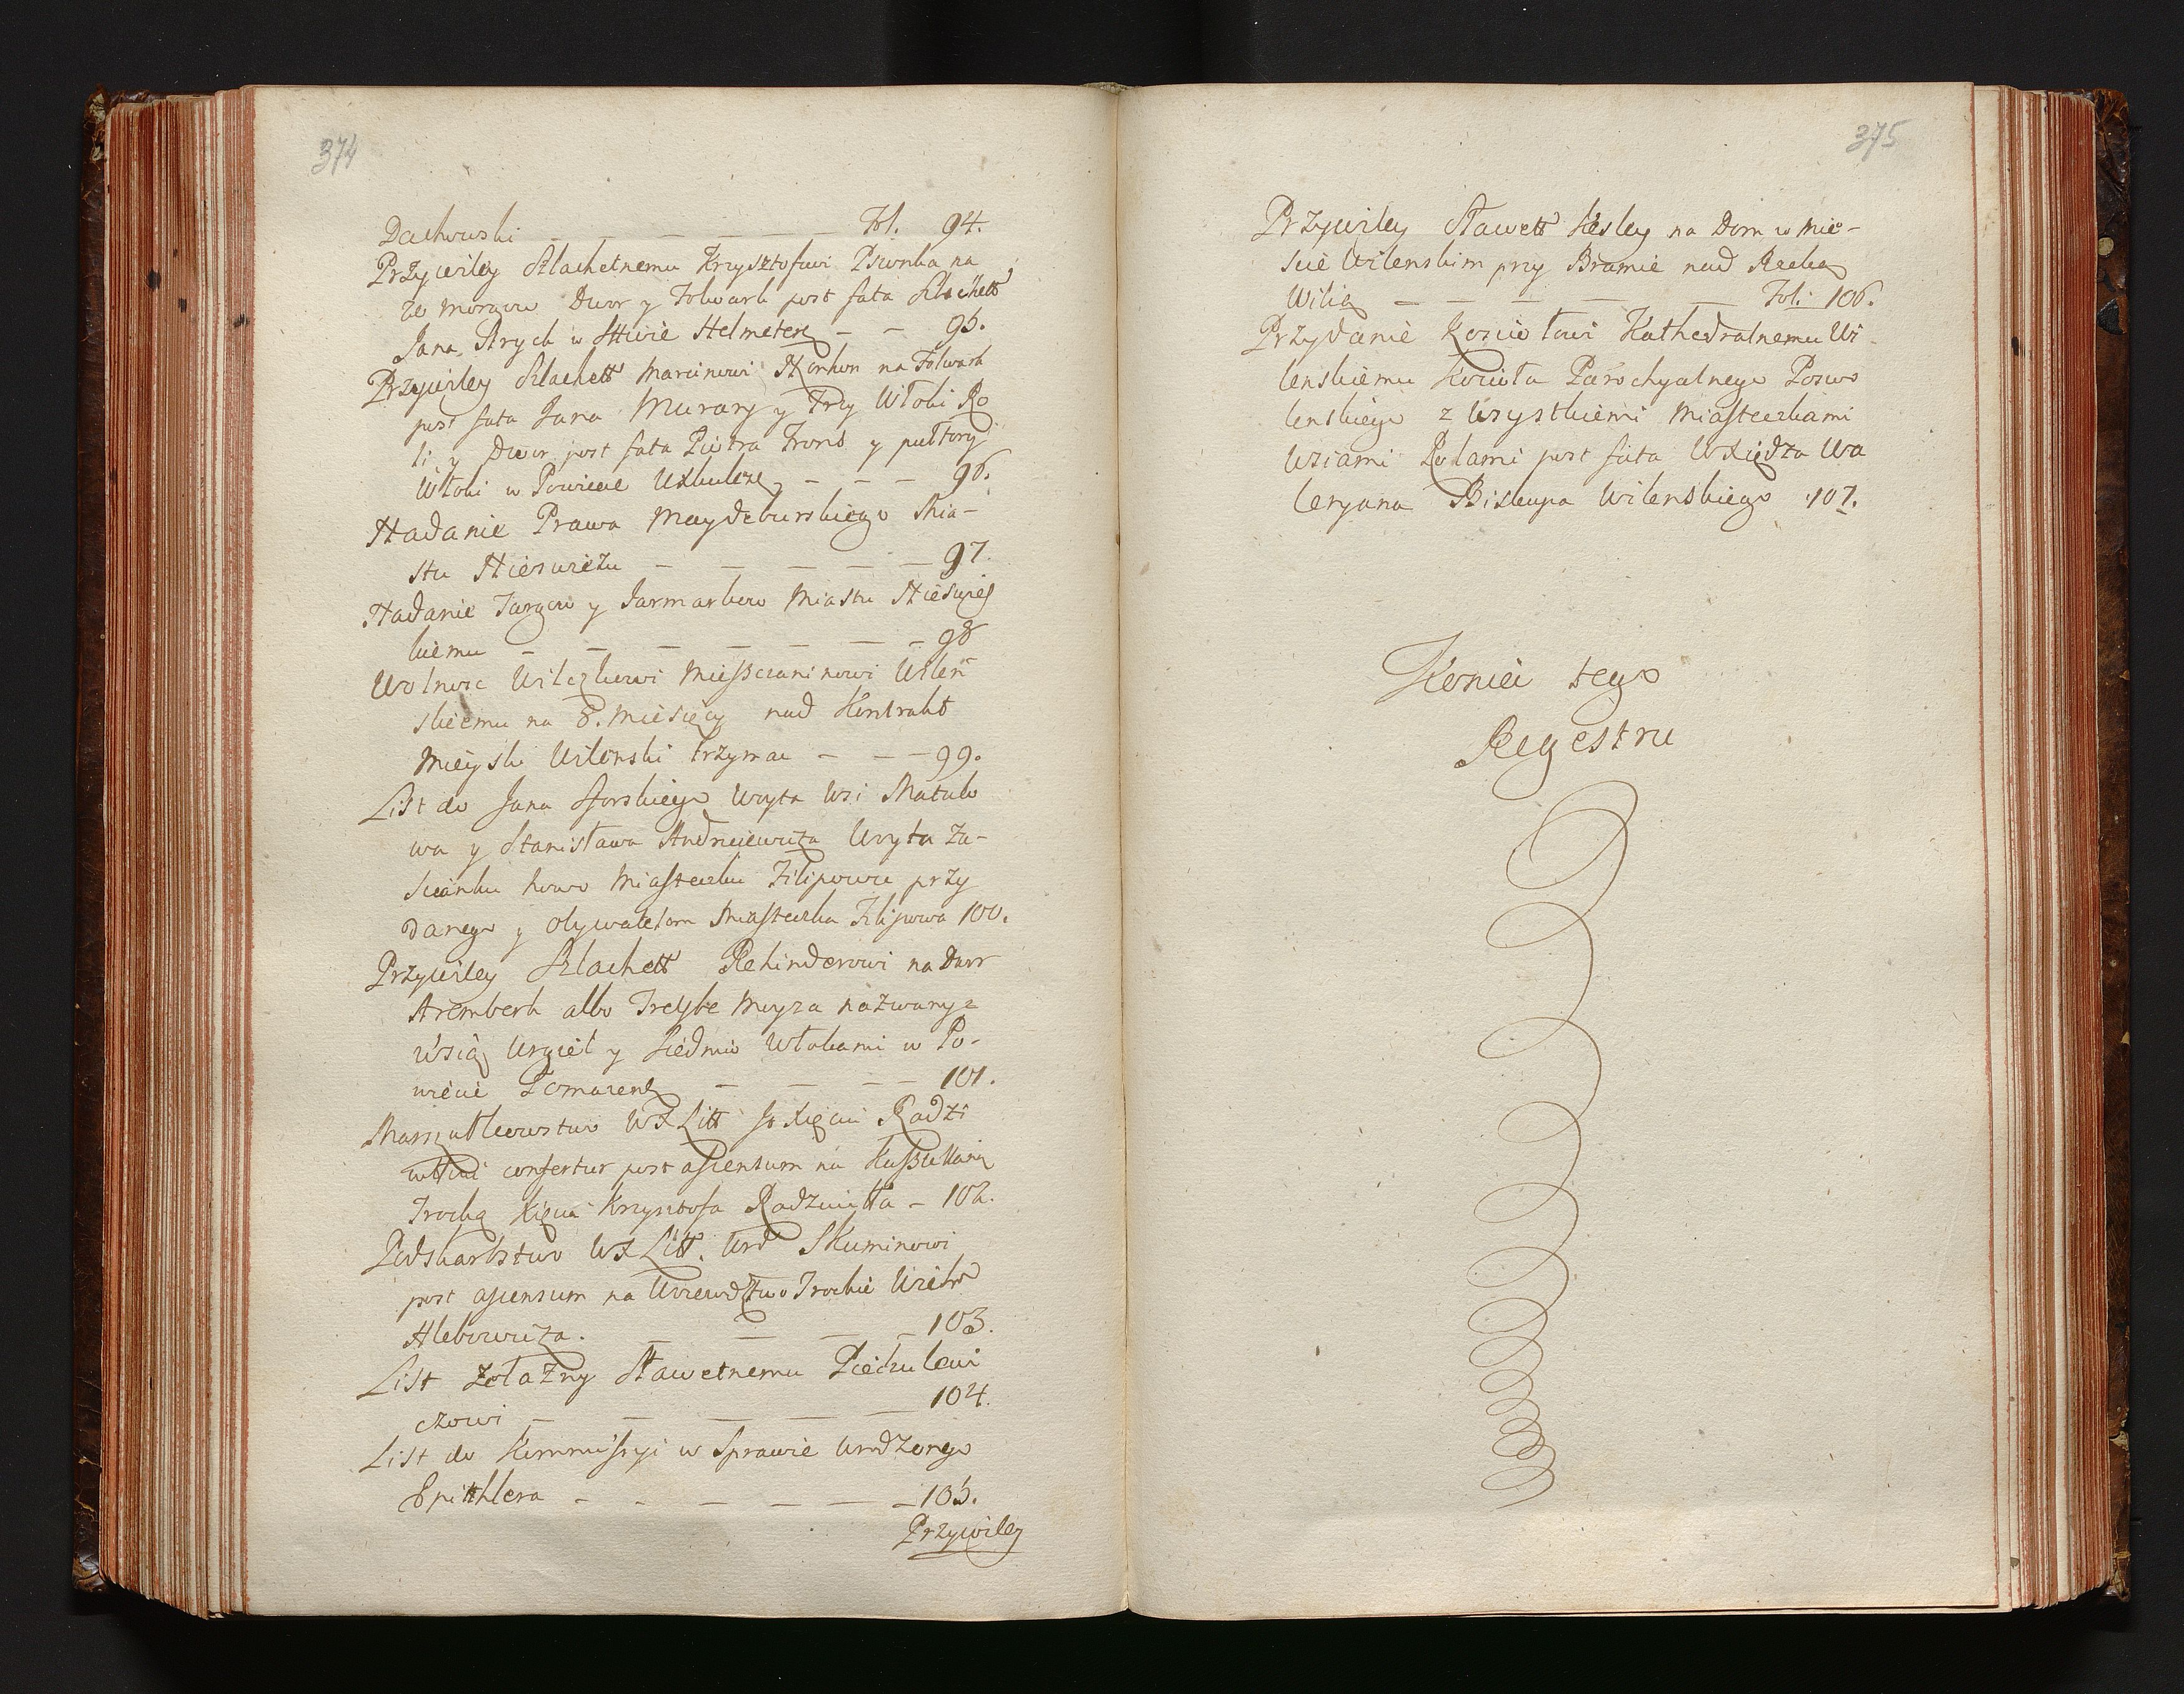 374
Dachowski — — — — — — Fol. 94.
Przywiley Szlachetnemu Krzysztofowi Psionka na
że morgow Dwor y Folwark post fata Szlachett
Jana Strych w Sttwie Helmeterz — — 95.
Przywiley Szlachett Marcinowi Korhon na Folwark
post fata Jana Murary y Trzy Włoki Ro
li y Dwor post fata Piotra Frons y pułtory
Włoki w Powiecie — — — 96.
Nadanie Prawa Maydeburskiego Mia-
stu Nieswieżu — — — — — 97.
Nadanie Targow y Jarmarkow Miastu Nieswies
kiemu — — — — — — — 98
Wolnosc Wilczkowi Miesszczaninowi Wileń
skiemu na 8. Miesięcy nad Kontrakt
Mieysk Wilenski trzymac — — 99.
List do Jana Sforskiego Woyta Wsi Matulo
wa y Stanisława Andrzeiewicza Woyta Za-
scianku nowo Miasteczku Filipowu przy
danego y Obywatelom Miasteczka Filipowa 100.
Przywiley Szlachett Rehinderowi na Dwor
Aremberk albo Freyte Moyza nazwany z
Wsią Urgiel y Siedmio Włokami w Po-
wiecie — — — — 101.
Marszałkowstwo WXLitt Jo Xięciu Radzi
wiłłowi confertur post ascensum na Kasztellanią
Trocką Xięcia Krzysztofa Radziwiłła — 102.
Podskarbstwo WXLitt. Urd Skuminowi
post ascensum na Woiewdztwo Trockie Wielm
Hlebowicza. — — — — 103.
List Żelazny Sławetnemu Pietzulewi
czowi — — — — — 104.
List do Kommissyi w Sprawie Urodzonego
Spitthlera — — — — — — 105.
Przywiley
375
Przywiley Sławett Kesley na Dom w Mie-
scie Wilenskim przy Bramie nad Rzeką
Wilią — — — — — Fol: 106.
Przydanie Koscio łowi Kathedralnemu Wi
lenskiemu Koscioła Parochyalnego Poswo
lenskiego z Wszystkiemi Miasteczkami
Wsiami Rolami post fata WXiędza Wa
leryana Biskupa Wilenskiego 107.
Koniec tego
Regestru